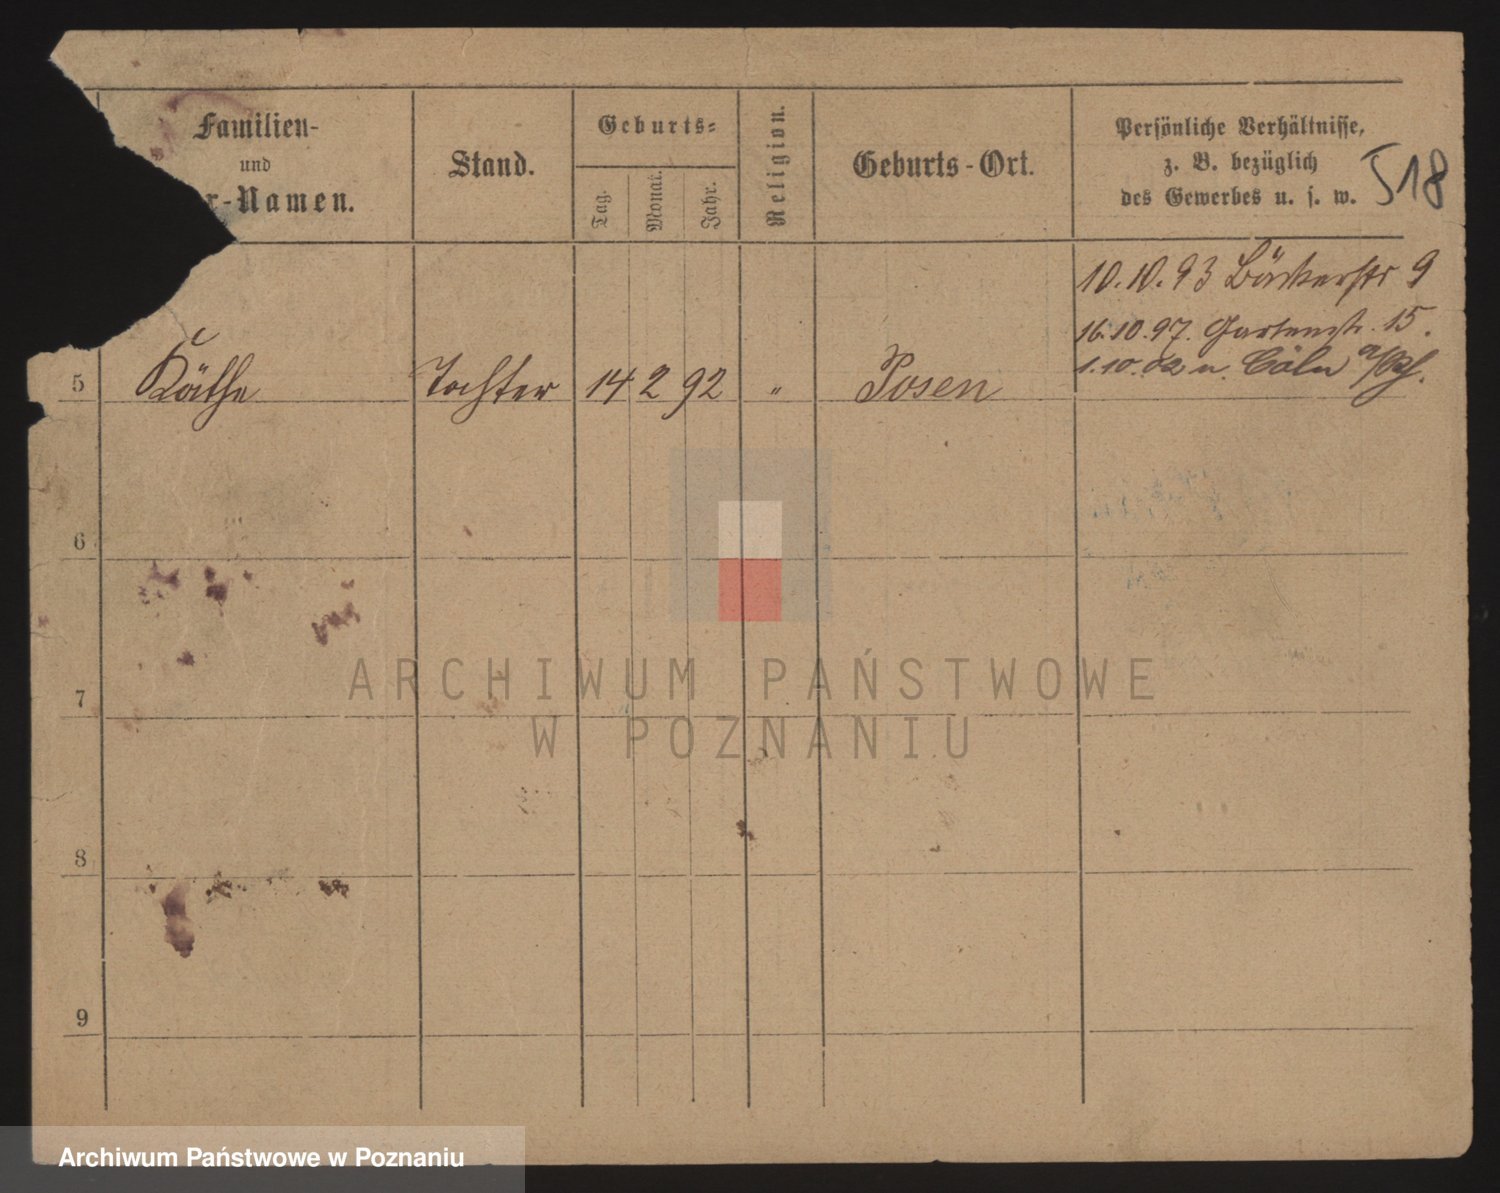 Familien-
und
r-Namen.
Stand.
Geburts-
Tag.
Monat.
Jahr.
Religion.
Geburts-Ort.
Persönliche Verhältnisse,
z. B. bezüglich
des Gewerbes u. s. w.
518
10.10.93 Bäckerstr 9
16.10.97. Gartenstr. 15.
1.10.02 n. Cöln a/Rh.
5 Käthe Tochter 14 2 92 " Posen
6
7
8
9
ARCHIWUM PAŃSTWOWE
W POZNANIU
Archiwum Państwowe w Poznaniu